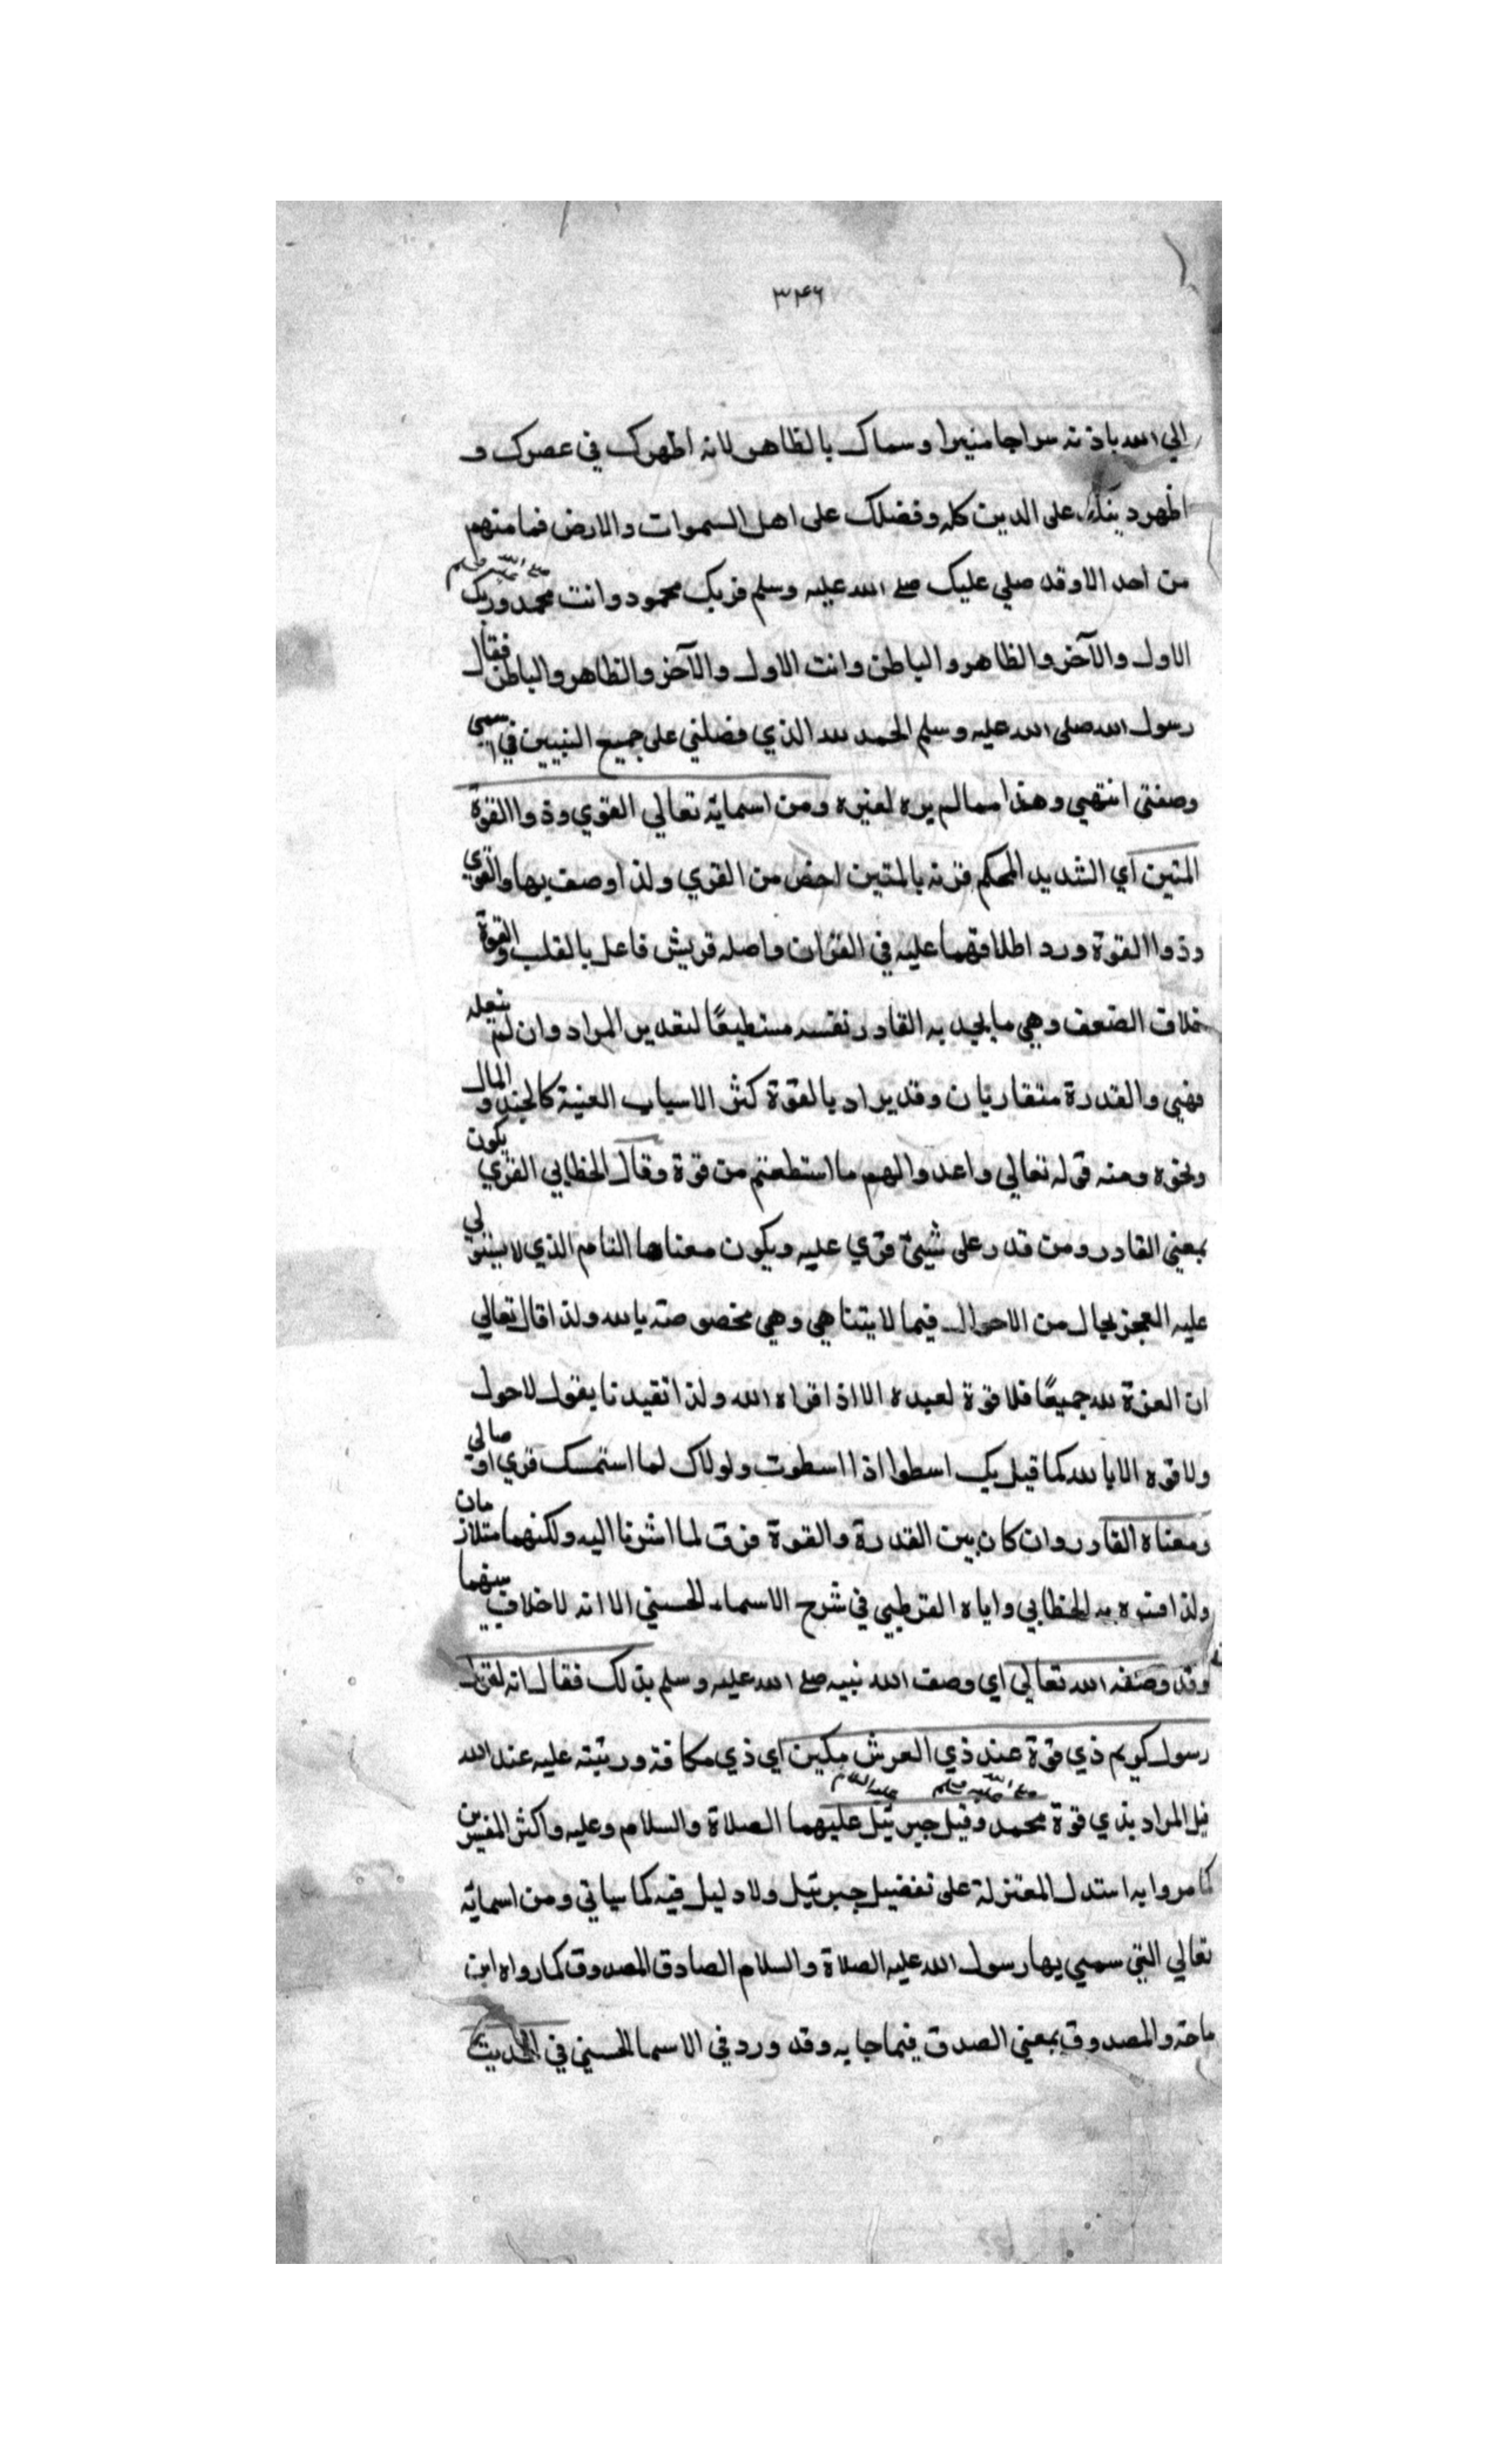 ٣٤٦
الي الله باذنه سراجا منيرا وسماك بالظاهر لانه اظهرك في عصرك و
اظهر دينك على الدين كله وفضلك على اهل السموات والارض فما منهم
من احد الا وقد صلي عليك صلے الله عليه وسلم فربك محمود وانت محمد صلے الله عليه وسلم وربك
الاول والآخر والظاهر والباطن وانت الاول والآخر والظاهر والباطن فقال
رسول الله صلى الله عليه وسلم الحمد لله الذي فضلني على جميع النبيين في اسمي
وصفتي انتهي وهذا ممالم يره لغيره ومن اسمايه تعالي القوي وذوا القوة
المتين اي الشديد المحكم قرنه بالمتين اخص من القوي ولذا وصف بها والقوي
وذوا القوة ورد اطلاقهما عليه في القران واصله قريش فاعل بالقلب والقوة
خلاف الضعف وهي ما يجد به القادر نفسه مستطيعًا لتقدير المراد وان لم يفعله
فهي والقدرة متقاربان وقد يراد بالقوة كثر الاسباب العنية كالجند والمال
ونحوه ومنه قوله تعالي واعدوا لهم ما استطعتم من قوة وقال الخطابي القوي يكون
بمعني القادر ومن قدر على شيئ قوي عليه ويكون معناها التام الذي لا يستولي
عليه العجز بحال من الاحوال فيما لا يتناهي وهي مخصوصته بالله ولذا قال تعالي
ان العزة لله جميعًا فلا قوة لعبده الا اذا قواه الله ولذا تقيدنا بقول لا حول
ولا قوه الا بالله كما قيل بك اسطوا اذا اسطوت ولولاك لما استمسك قوي اوصالي
ومعناه القادر وان كان بين القدرة والقوة فرق لما اشرنا اليه ولكنهما متلازمان
ولذا فسره به الخطابي واياه القرطبي في شرح الاسماء الحسني الا انه لا خلاف بينهما
وقد وصفه الله تعالي اي وصف الله نبيه صلے الله عليه وسلم بذلك فقال انه لقول
رسول كريم ذي قوة عند ذي العرش مكين اي ذي مكافة ورتبته عليه عند الله
قيل المراد بذي قوة محمد صلے الله عليه وسلم وقيل جبرئيل عليه السلام عليهما الصلاة والسلام وعليه واكثر المفسرين
كما مر وا به استدل المعتزلة على تفضيل جبرئيل ولا دليل فيه كما سياتي ومن اسمايه
تعالي التي سمي بها رسول الله عليه الصلاة والسلام الصادق المصدوق كما رواه ابن
ماجة والمصدوق بمعني الصدق فيما جا به وقد ورد في الاسما الحسني في الحديث